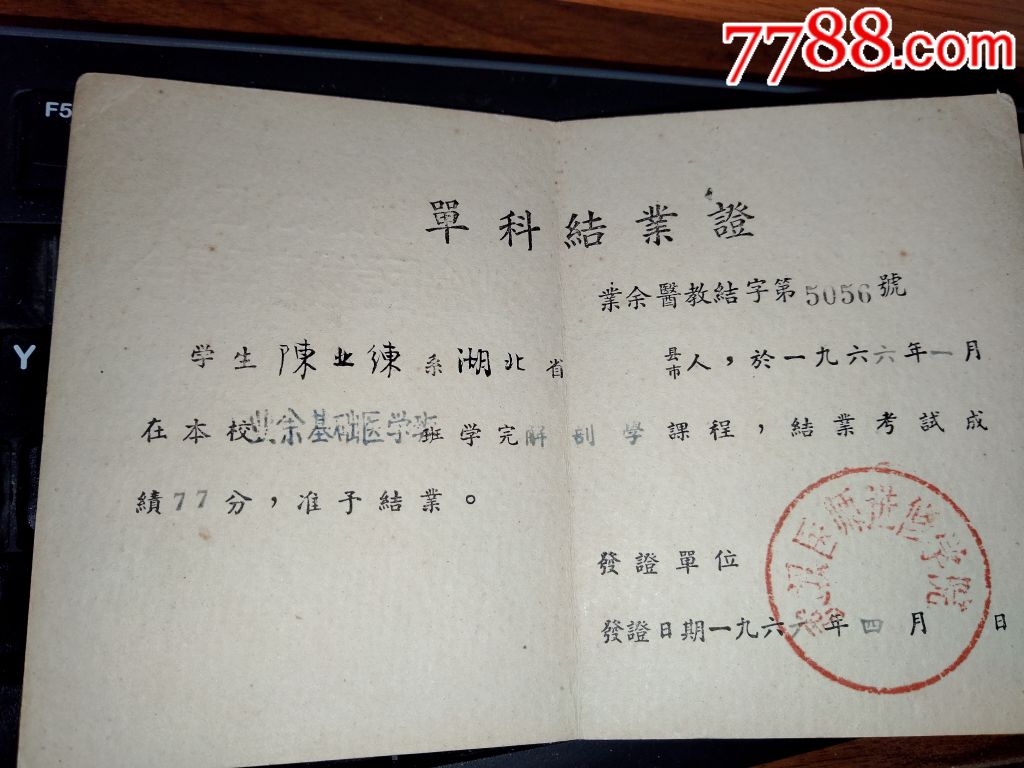 7788.com
F5
Y
單科結業證
業余醫教結字第5056號
学生陳业練系湖北省 县市人，於一九六六年一月
在本校业余基础医学班班学完解剖學課程，結業考試成
績77分，准予結業。
發證單位
發證日期一九六六年四月 日
武汉医师进修学院